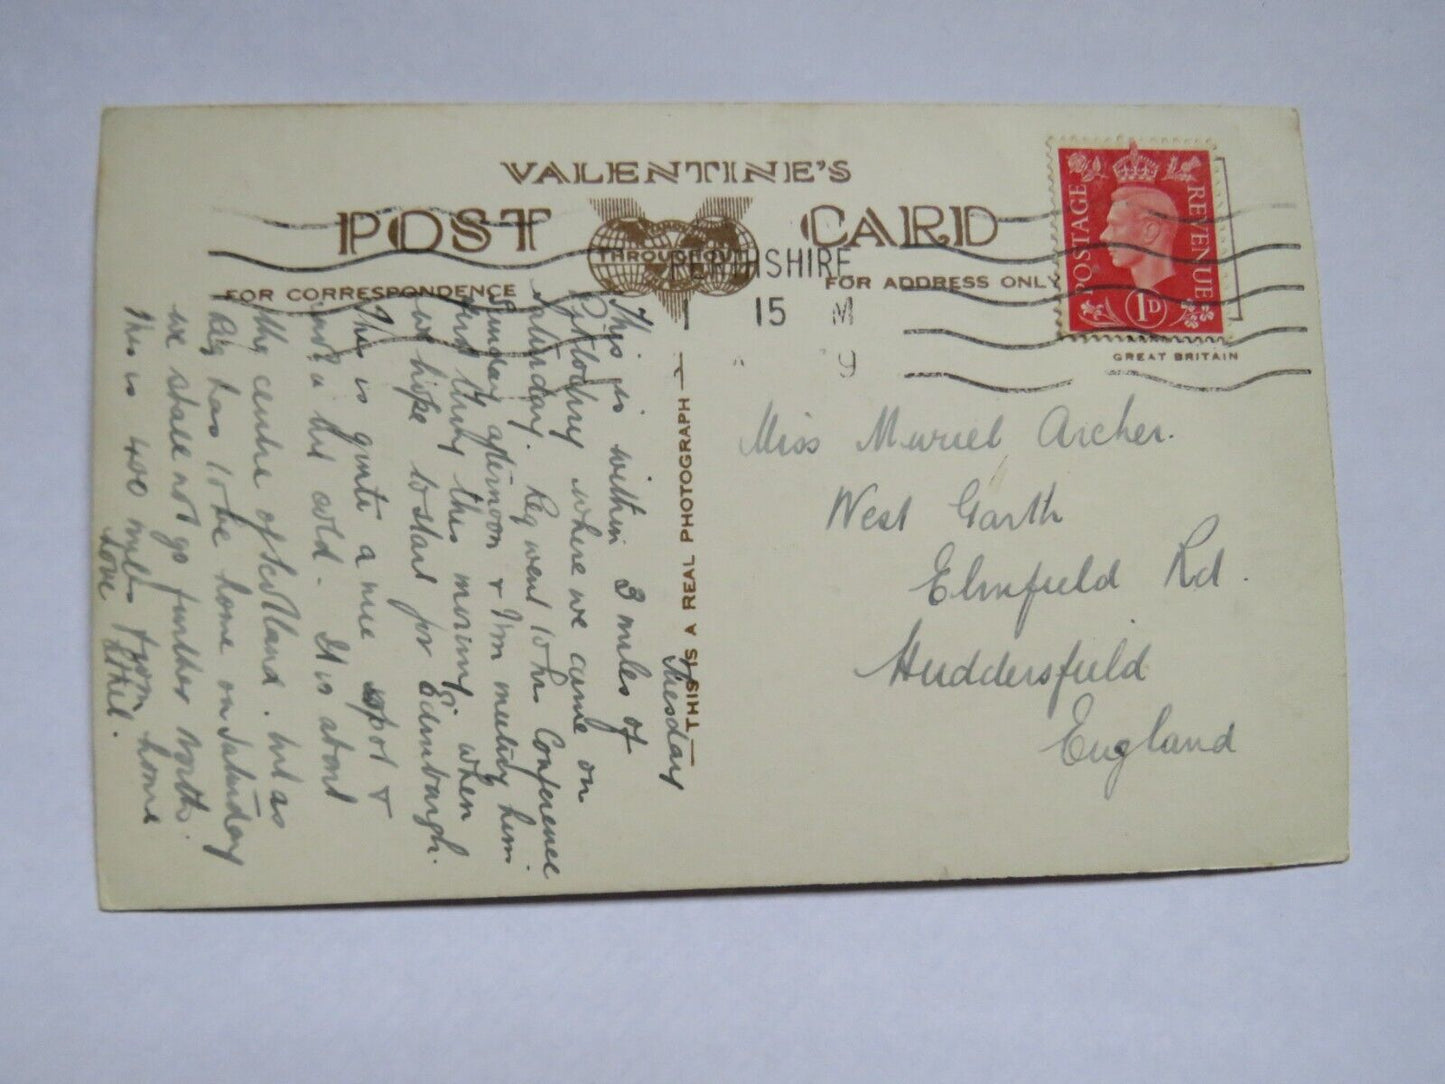 VALENTINE'S
POST CARD
THROUGHOUT
FOR CORRESPONDENCE
FOR ADDRESS ONLY
PERTHSHIRE
15 M
9
POSTAGE REVENUE
1D
GREAT BRITAIN
THIS IS A REAL PHOTOGRAPH
Tuesday
This is within 3 miles of
Pitlochry where we came on
Saturday. Reg went to his Conference
Sunday afternoon & I'm meeting him
this morning when
we hope to start for Edinburgh.
This is quite a nice spot &
a bit cold. It is about
the centre of Scotland. but as
Reg has to be home on Saturday
we shall not go further North.
This is 400 miles from home
Love Ethel.
Miss Muriel Archer.
West Garth
Elmfield Rd.
Huddersfield
England